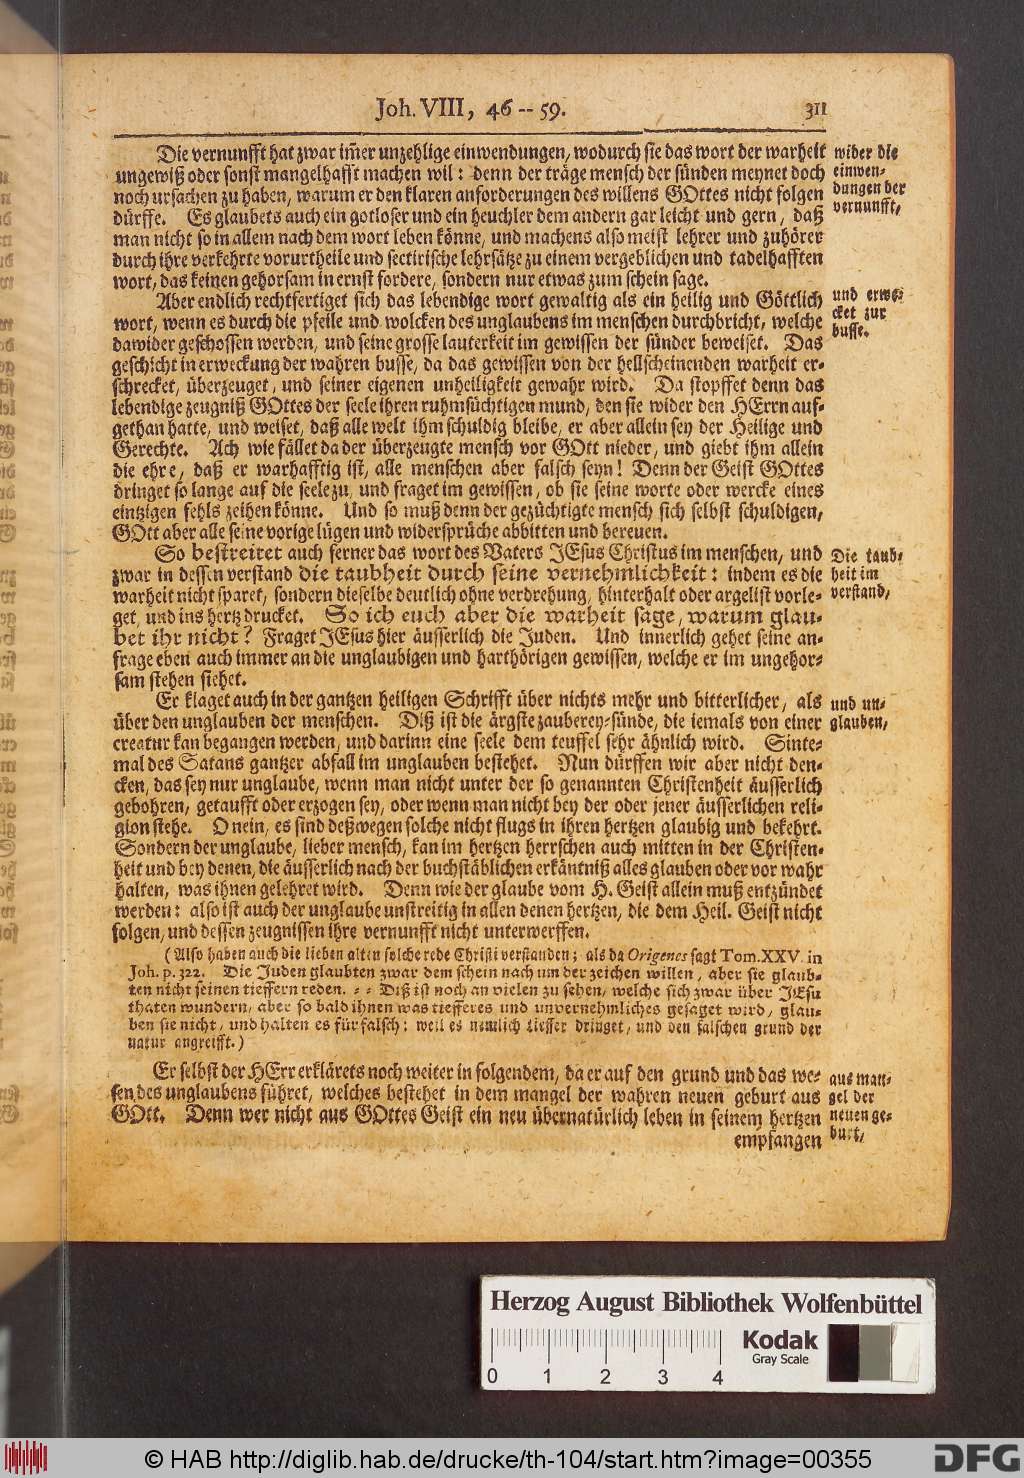 Joh. VIII, 46 -- 59.
311
Die vernunfft hat zwar im̃er unzehlige einwendungen, wodurch sie das wort der warheit
ungewiß oder sonst mangelhafft machen wil: denn der träge mensch der sünden meynet doch
noch ursachen zu haben, warum er den klaren anforderungen des willens GOttes nicht folgen
dürffe. Es glaubets auch ein gotloser und ein heuchler dem andern gar leicht und gern, daß
man nicht so in allem nach dem wort leben könne, und machens also meist lehrer und zuhörer
durch ihre verkehrte vorurtheile und sectirische lehrsätze zu einem vergeblichen und tadelhafften
wort, das keinen gehorsam in ernst fordere, sondern nur etwas zum schein sage.
wider die
einwen-
dungen der
vernunfft,
Aber endlich rechtfertiget sich das lebendige wort gewaltig als ein heilig und Göttlich
wort, wenn es durch die pfeile und wolcken des unglaubens im menschen durchbricht, welche
dawider geschossen werden, und seine grosse lauterkeit im gewissen der sünder beweiset. Das
geschicht in erweckung der wahren busse, da das gewissen von der hellscheinenden warheit er-
schrecket, überzeuget, und seiner eigenen unheiligkeit gewahr wird. Da stopffet denn das
lebendige zeugniß GOttes der seele ihren ruhmsüchtigen mund, den sie wider den HErrn auf-
gethan hatte, und weiset, daß alle welt ihm schuldig bleibe, er aber allein sey der Heilige und
Gerechte. Ach wie fället da der überzeugte mensch vor GOtt nieder, und giebt ihm allein
die ehre, daß er warhafftig ist, alle menschen aber falsch seyn! Denn der Geist GOttes
dringet so lange auf die seele zu, und fraget im gewissen, ob sie seine worte oder wercke eines
eintzigen fehls zeihen könne. Und so muß denn der gezüchtigte mensch sich selbst schuldigen,
GOtt aber alle seine vorige lügen und widersprüche abbitten und bereuen.
und erwe-
cket zur
busse.
So bestreitet auch ferner das wort des Vaters JEsus Christus im menschen, und
zwar in dessen verstand die taubheit durch seine vernehmlichkeit: indem es die
warheit nicht sparet, sondern dieselbe deutlich ohne verdrehung, hinterhalt oder argelist vorle-
get, und ins hertz drucket. So ich euch aber die warheit sage, warum glau-
bet ihr nicht? Fraget JEsus hier äusserlich die Juden. Und innerlich gehet seine an-
frage eben auch immer an die unglaubigen und harthörigen gewissen, welche er im ungehor-
sam stehen siehet.
Die taub-
heit im
verstand,
Er klaget auch in der gantzen heiligen Schrifft über nichts mehr und bitterlicher, als
über den unglauben der menschen. Diß ist die ärgste zauberey-sünde, die iemals von einer
creatur kan begangen werden, und darinn eine seele dem teuffel sehr ähnlich wird. Sinte-
mal des Satans gantzer abfall im unglauben bestehet. Nun dürffen wir aber nicht den-
cken, das sey nur unglaube, wenn man nicht unter der so genannten Christenheit äusserlich
gebohren, getaufft oder erzogen sey, oder wenn man nicht bey der oder jener äusserlichen reli-
gion stehe. O nein, es sind deßwegen solche nicht flugs in ihren hertzen glaubig und bekehrt.
Sondern der unglaube, lieber mensch, kan im hertzen herrschen auch mitten in der Christen-
heit und bey denen, die äusserlich nach der buchstäblichen erkäntniß alles glauben oder vor wahr
halten, was ihnen gelehret wird. Denn wie der glaube vom H. Geist allein muß entzündet
werden: also ist auch der unglaube unstreitig in allen denen hertzen, die dem Heil. Geist nicht
folgen, und dessen zeugnissen ihre vernunfft nicht unterwerffen.
und un-
glauben,
(Also haben auch die lieben alten solche rede Christi verstanden; als da Origenes sagt Tom. XXV. in
Joh. p. 322. Die Juden glaubten zwar dem schein nach um der zeichen willen, aber sie glaub-
ten nicht seinen tieffern reden. - - Diß ist noch an vielen zu sehen, welche sich zwar über JEsu
thaten wundern, aber so bald ihnen was tiefferes und unvernehmliches gesaget wird, glau-
ben sie nicht, und halten es für falsch: weil es nemlich tieffer dringet, und den falschen grund der
natur angreifft.)
Er selbst der HErr erklärets noch weiter in folgendem, da er auf den grund und das we-
sen des unglaubens führet, welches bestehet in dem mangel der wahren neuen geburt aus
GOtt. Denn wer nicht aus GOttes Geist ein neu übernatürlich leben in seinem hertzen
empfangen
aus man-
gel der
neuen ge-
burt,
Herzog August Bibliothek Wolfenbüttel
Kodak
Gray Scale
0 1 2 3 4
© HAB http://diglib.hab.de/drucke/th-104/start.htm?image=00355
DFG